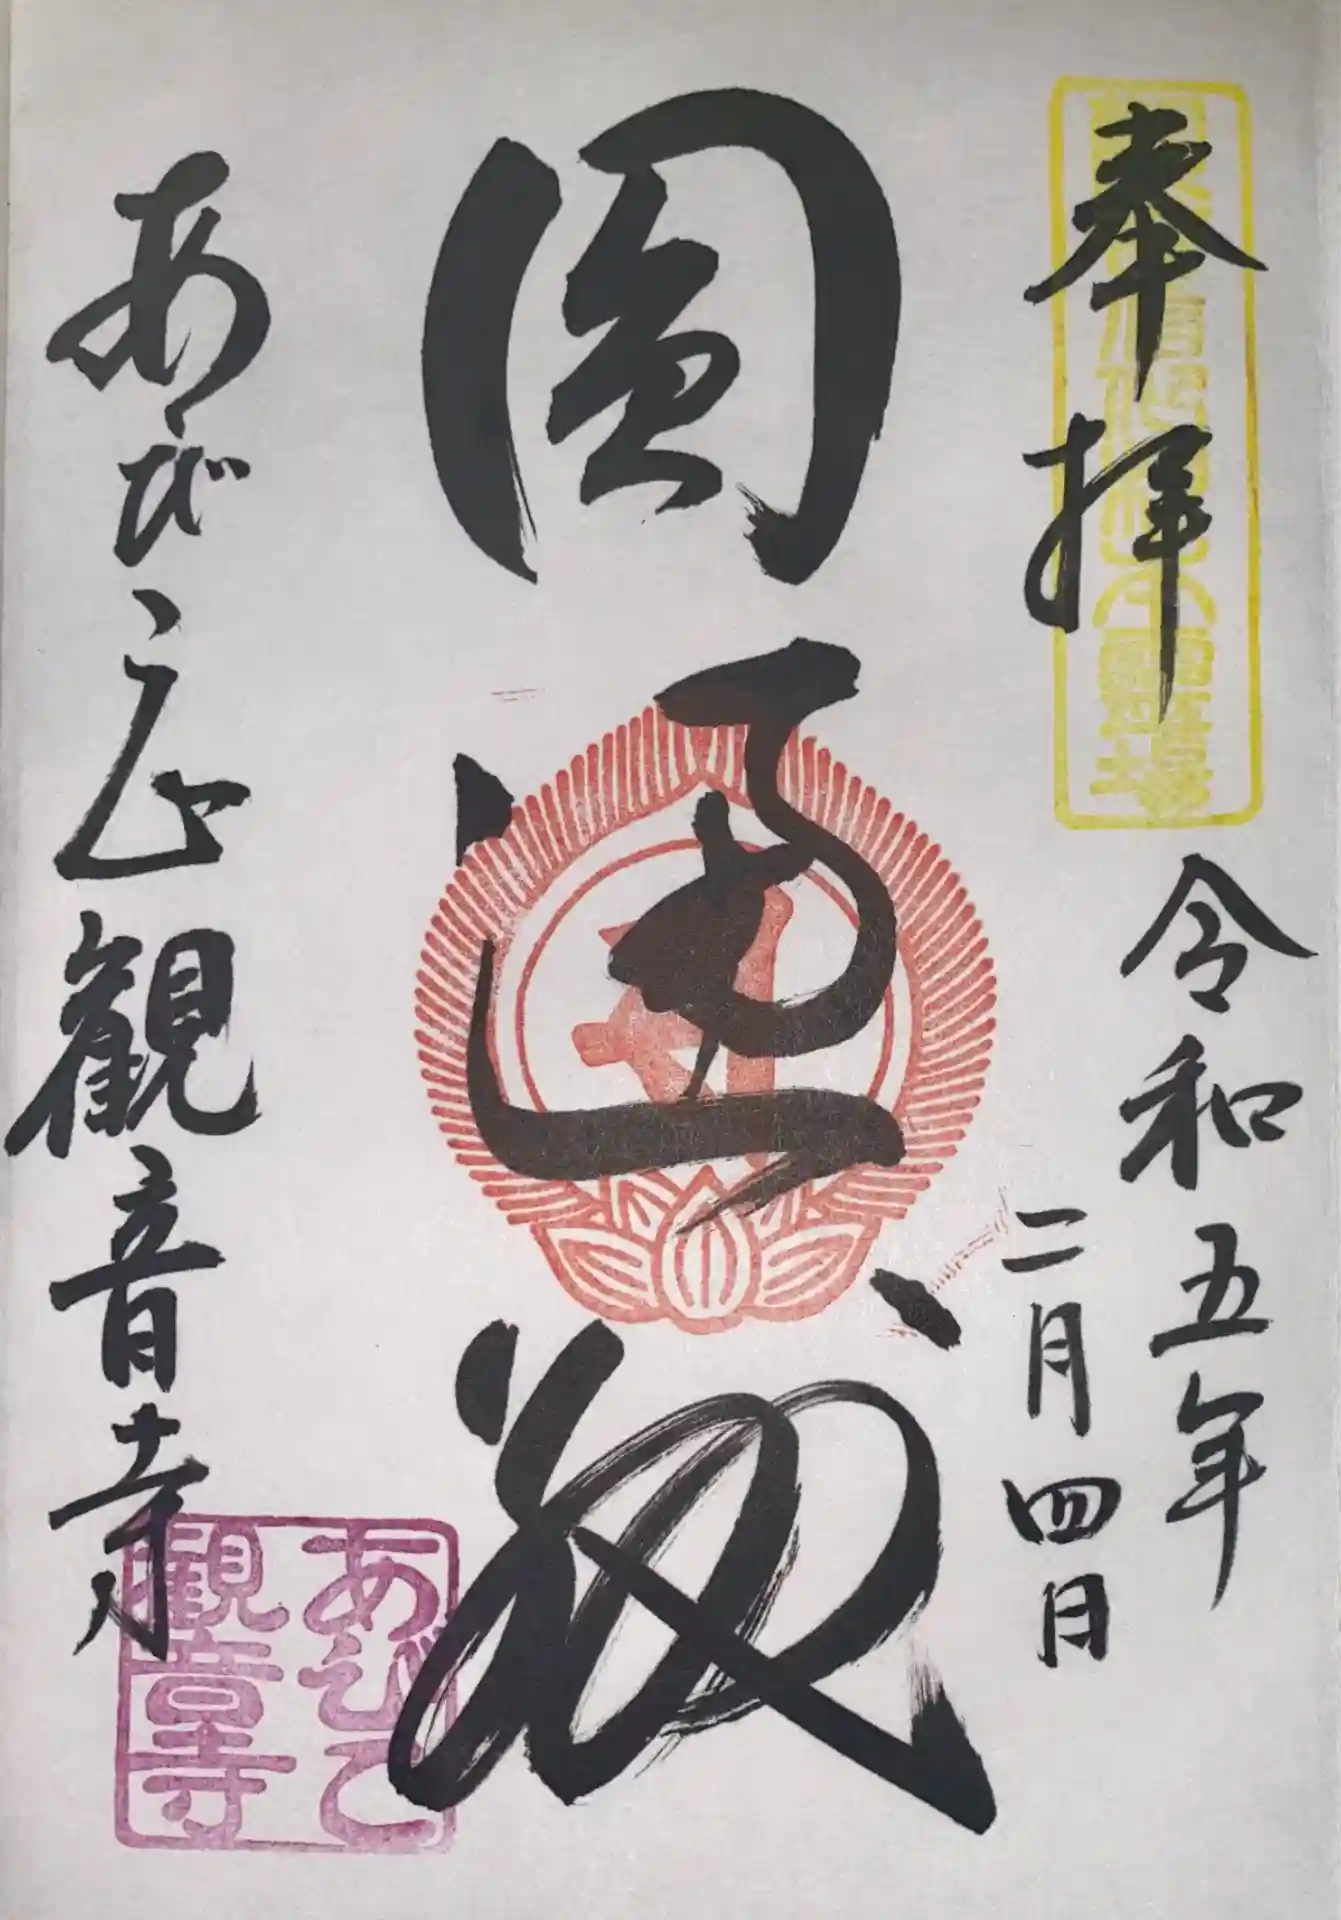 奉拝
令和五年
二月四日
圓通殿
あびこ山観音寺
あびこ
観音寺